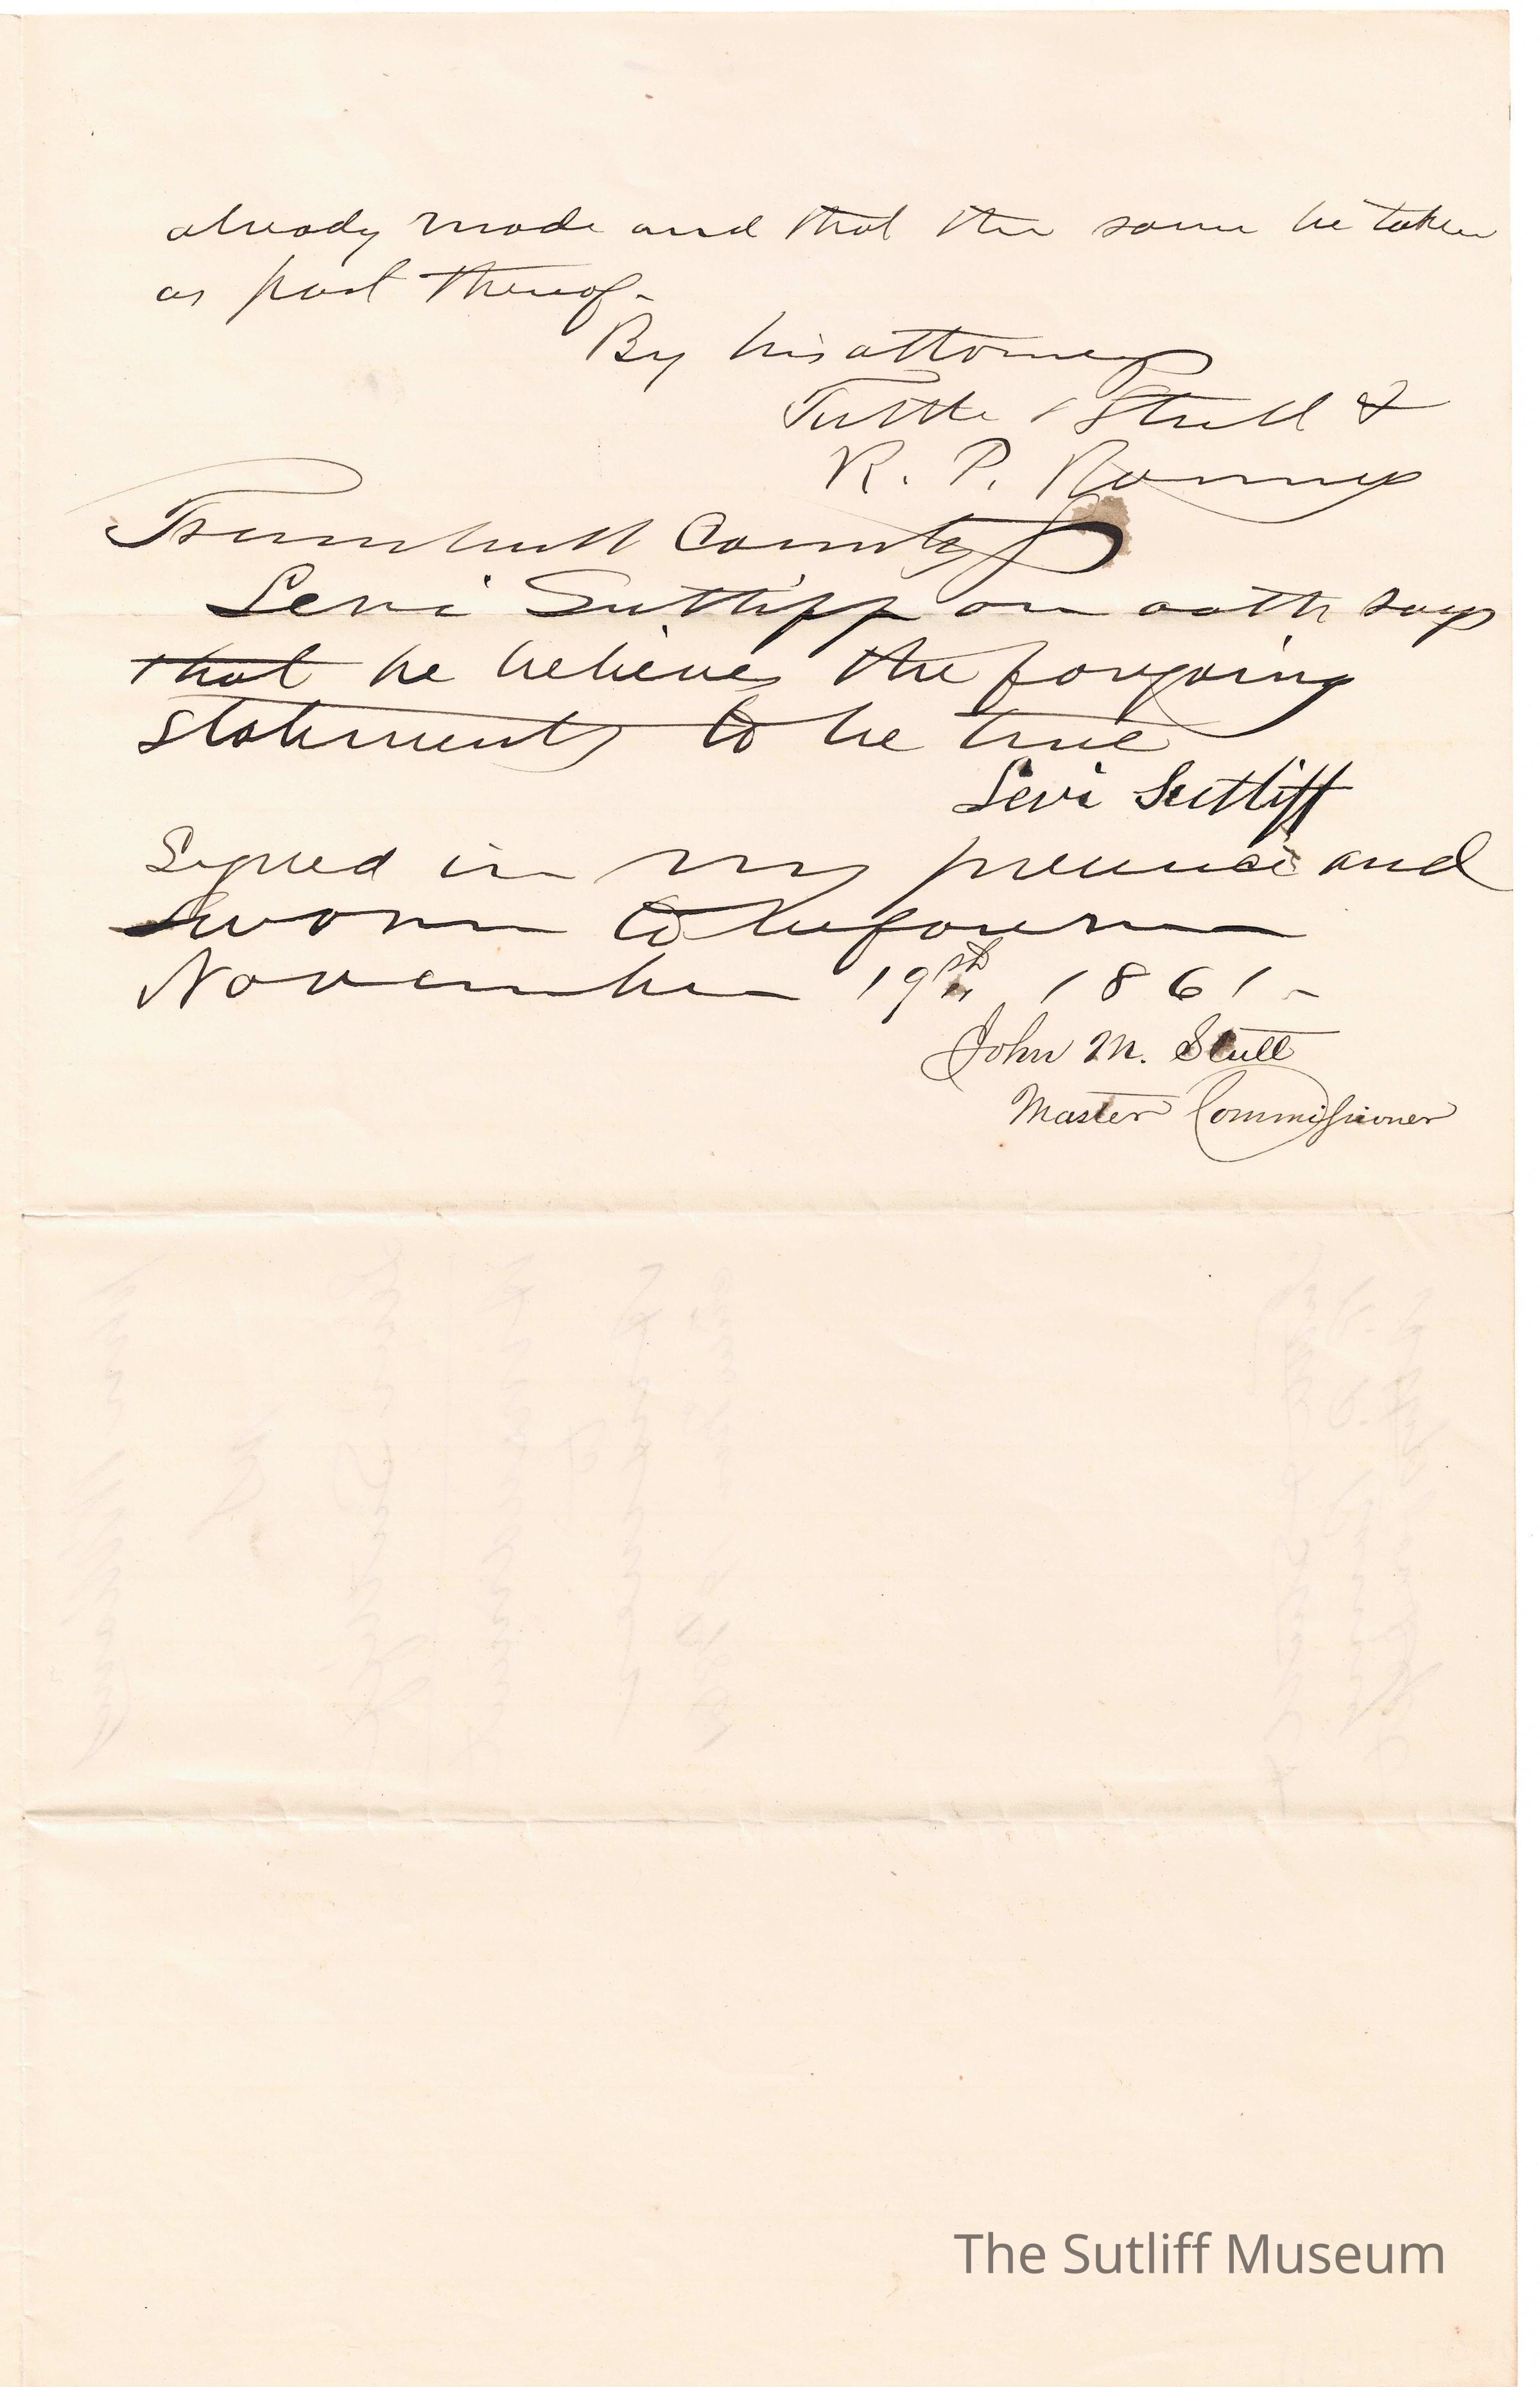 already made and that the same be taken
as part thereof-
By his attorneys
Tuttle & Stull &
R. P. Ranney
Trumbull County
Levi Sutliff on oath says
that he believes the forgoing
statements to be true
Levi Sutliff
Signed in my presence and
Sworn to before me
November 19th 1861-
John M. Stull
Master Commissioner
The Sutliff Museum